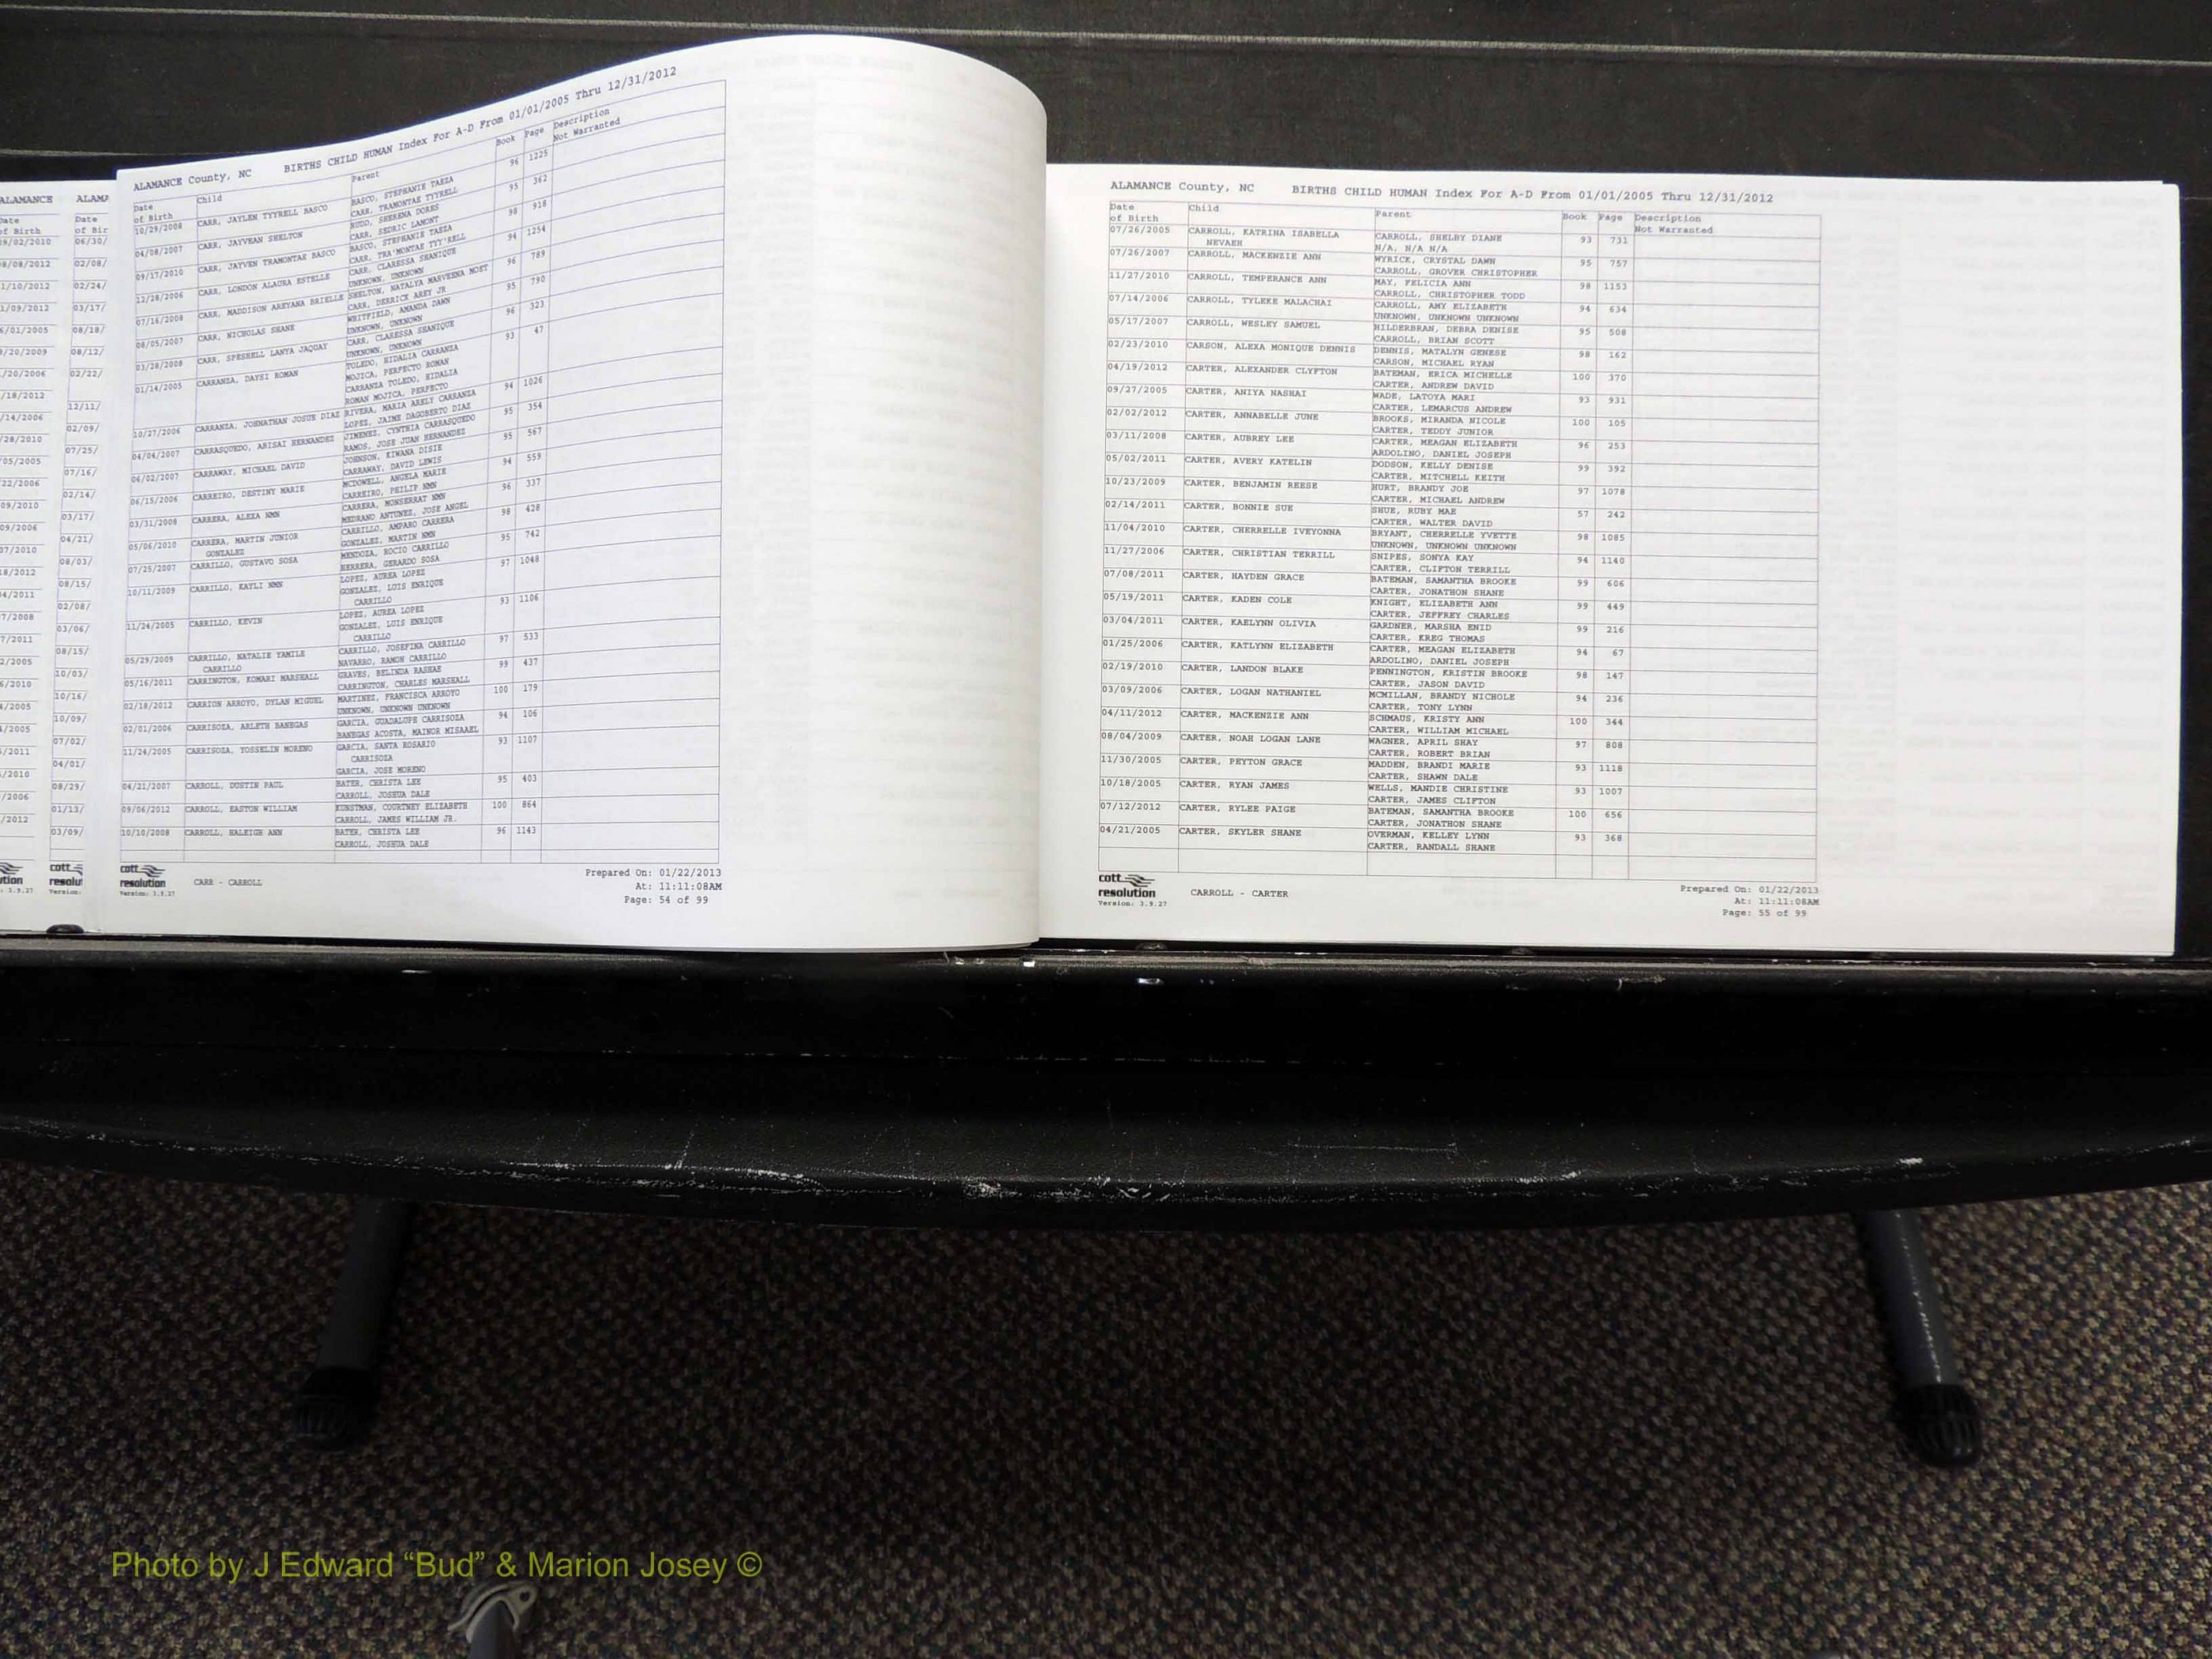 ALAMANCE
Date
of Birth
ALAMA
Date
of Bir
06/30/
02/08/
02/24/
03/17/
08/18/
08/12/
02/22/
12/11/
02/09/
07/25/
07/16/
02/14/
03/17/
04/21/
08/03/
08/15/
02/08/
03/06/
08/15/
10/03/
10/16/
10/09/
07/02/
04/01/
08/29/
01/13/
03/09/
ALAMANCE County, NC BIRTHS CHILD HUMAN Index For A-D From 01/01/2005 Thru 12/31/2012
Date of Birth Child Parent Book Page Description
Not Warranted
10/29/2008 CARR, JAYLEN TYYRELL BASCO BASCO, STEPHANIE TAEZA 96 1225
CARR, TRAMONTAE TYYRELL
04/08/2007 CARR, JAYVEAN SHELTON RUDD, SHERENA DORES 95 362
CARR, SEDRIC LAMONT
09/17/2010 CARR, JAYVEN TRAMONTAE BASCO BASCO, STEPHANIE TAEZA 98 918
CARR, TRA'MONTAE TYY'RELL
12/28/2006 CARR, LONDON ALAURA ESTELLE CARR, CLARESSA SHANIQUE 94 1254
UNKNOWN, UNKNOWN
07/16/2008 CARR, MADDISON AREYANA BRIELLE SHELTON, NATALYA MARVEENA MOET 96 789
CARR, DERRICK AREY JR
08/05/2007 CARR, NICHOLAS SHANE WHITFIELD, AMANDA DAWN 95 790
UNKNOWN, UNKNOWN
03/28/2008 CARR, SPESHELL LANYA JAQUAY CARR, CLARESSA SHANIQUE 96 323
UNKNOWN, UNKNOWN
01/14/2005 CARRANZA, DAYSI ROMAN TOLEDO, HIDALIA CARRANZA 93 47
MOJICA, PERFECTO ROMAN
CARRANZA TOLEDO, HIDALIA
ROMAN MOJICA, PERFECTO
10/27/2006 CARRANZA, JOHNATHAN JOSUE DIAZ RIVERA, MARIA ARELY CARRANZA 94 1026
LOPEZ, JAIME DAGOBERTO DIAZ
04/04/2007 CARRASQUEDO, ABISAI HERNANDEZ JIMENEZ, CYNTHIA CARRASQUEDO 95 354
RAMOS, JOSE JUAN HERNANDEZ
06/02/2007 CARRAWAY, MICHAEL DAVID JOHNSON, KIWANA DISIE 95 567
CARRAWAY, DAVID LEWIS
06/15/2006 CARREIRO, DESTINY MARIE MCDOWELL, ANGELA MARIE 94 559
CARREIRO, PHILIP NMN
03/31/2008 CARRERA, ALEXA NMN CARRERA, MONSERRAT NMN 96 337
MEDRANO ANTUNEZ, JOSE ANGEL
05/06/2010 CARRERA, MARTIN JUNIOR CARRILLO, AMPARO CARRERA 98 428
GONZALEZ GONZALEZ, MARTIN NMN
07/25/2007 CARRILLO, GUSTAVO SOSA MENDOZA, ROCIO CARRILLO 95 742
HERRERA, GERARDO SOSA
10/11/2009 CARRILLO, KAYLI NMN LOPEZ, AUREA LOPEZ 97 1048
GONZALEZ, LUIS ENRIQUE
CARRILLO
11/24/2005 CARRILLO, KEVIN LOPEZ, AUREA LOPEZ 93 1106
GONZALEZ, LUIS ENRIQUE
CARRILLO
05/29/2009 CARRILLO, NATALIE YAMILE CARRILLO, JOSEFINA CARRILLO 97 533
CARRILLO NAVARRO, RAMON CARRILLO
05/16/2011 CARRINGTON, KOMARI MARSHALL GRAVES, BELINDA RASHAE 99 437
CARRINGTON, CHARLES MARSHALL
02/18/2012 CARRION ARROYO, DYLAN MIGUEL MARTINEZ, FRANCISCA ARROYO 100 179
UNKNOWN, UNKNOWN UNKNOWN
02/01/2006 CARRISOZA, ARLETH BANEGAS GARCIA, GUADALUPE CARRISOZA 94 106
BANEGAS ACOSTA, MAINOR MISAAEL
11/24/2005 CARRISOZA, YOSSELIN MORENO GARCIA, SANTA ROSARIO 93 1107
CARRISOZA
GARCIA, JOSE MORENO
04/21/2007 CARROLL, DUSTIN PAUL BATER, CHRISTA LEE 95 403
CARROLL, JOSHUA DALE
09/06/2012 CARROLL, EASTON WILLIAM KUNSTMAN, COURTNEY ELIZABETH 100 864
CARROLL, JAMES WILLIAM JR.
10/10/2008 CARROLL, HALEIGH ANN BATER, CHRISTA LEE 96 1143
CARROLL, JOSHUA DALE
cott
resolution
Version: 3.9.27
CARR - CARROLL
Prepared On: 01/22/2013
At: 11:11:08AM
Page: 54 of 99
ALAMANCE County, NC BIRTHS CHILD HUMAN Index For A-D From 01/01/2005 Thru 12/31/2012
Date of Birth Child Parent Book Page Description
Not Warranted
07/26/2005 CARROLL, KATRINA ISABELLA CARROLL, SHELBY DIANE 93 731
NEVAEH N/A, N/A N/A
07/26/2007 CARROLL, MACKENZIE ANN WYRICK, CRYSTAL DAWN 95 757
CARROLL, GROVER CHRISTOPHER
11/27/2010 CARROLL, TEMPERANCE ANN MAY, FELICIA ANN 98 1153
CARROLL, CHRISTOPHER TODD
07/14/2006 CARROLL, TYLEKE MALACHAI CARROLL, AMY ELIZABETH 94 634
UNKNOWN, UNKNOWN UNKNOWN
05/17/2007 CARROLL, WESLEY SAMUEL HILDERBRAN, DEBRA DENISE 95 508
CARROLL, BRIAN SCOTT
02/23/2010 CARSON, ALEXA MONIQUE DENNIS DENNIS, MATALYN GENESE 98 162
CARSON, MICHAEL RYAN
04/19/2012 CARTER, ALEXANDER CLYFTON BATEMAN, ERICA MICHELLE 100 370
CARTER, ANDREW DAVID
09/27/2005 CARTER, ANIYA NASHAI WADE, LATOYA MARI 93 931
CARTER, LEMARCUS ANDREW
02/02/2012 CARTER, ANNABELLE JUNE BROOKS, MIRANDA NICOLE 100 105
CARTER, TEDDY JUNIOR
03/11/2008 CARTER, AUBREY LEE CARTER, MEAGAN ELIZABETH 96 253
ARDOLINO, DANIEL JOSEPH
05/02/2011 CARTER, AVERY KATELIN DODSON, KELLY DENISE 99 392
CARTER, MITCHELL KEITH
10/23/2009 CARTER, BENJAMIN REESE HURT, BRANDY JOE 97 1078
CARTER, MICHAEL ANDREW
02/14/2011 CARTER, BONNIE SUE SHUE, RUBY MAE 57 242
CARTER, WALTER DAVID
11/04/2010 CARTER, CHERRELLE IVEYONNA BRYANT, CHERRELLE YVETTE 98 1085
UNKNOWN, UNKNOWN UNKNOWN
11/27/2006 CARTER, CHRISTIAN TERRILL SNIPES, SONYA KAY 94 1140
CARTER, CLIFTON TERRILL
07/08/2011 CARTER, HAYDEN GRACE BATEMAN, SAMANTHA BROOKE 99 606
CARTER, JONATHON SHANE
05/19/2011 CARTER, KADEN COLE KNIGHT, ELIZABETH ANN 99 449
CARTER, JEFFREY CHARLES
03/04/2011 CARTER, KAELYNN OLIVIA GARDNER, MARSHA ENID 99 216
CARTER, KREG THOMAS
01/25/2006 CARTER, KATLYNN ELIZABETH CARTER, MEAGAN ELIZABETH 94 67
ARDOLINO, DANIEL JOSEPH
02/19/2010 CARTER, LANDON BLAKE PENNINGTON, KRISTIN BROOKE 98 147
CARTER, JASON DAVID
03/09/2006 CARTER, LOGAN NATHANIEL MCMILLAN, BRANDY NICHOLE 94 236
CARTER, TONY LYNN
04/11/2012 CARTER, MACKENZIE ANN SCHMAUS, KRISTY ANN 100 344
CARTER, WILLIAM MICHAEL
08/04/2009 CARTER, NOAH LOGAN LANE WAGNER, APRIL SHAY 97 808
CARTER, ROBERT BRIAN
11/30/2005 CARTER, PEYTON GRACE MADDEN, BRANDI MARIE 93 1118
CARTER, SHAWN DALE
10/18/2005 CARTER, RYAN JAMES WELLS, MANDIE CHRISTINE 93 1007
CARTER, JAMES CLIFTON
07/12/2012 CARTER, RYLEE PAIGE BATEMAN, SAMANTHA BROOKE 100 656
CARTER, JONATHON SHANE
04/21/2005 CARTER, SKYLER SHANE OVERMAN, KELLEY LYNN 93 368
CARTER, RANDALL SHANE
cott
resolution
Version: 3.9.27
CARROLL - CARTER
Prepared On: 01/22/2013
At: 11:11:08AM
Page: 55 of 99
Photo by J Edward “Bud” & Marion Josey ©